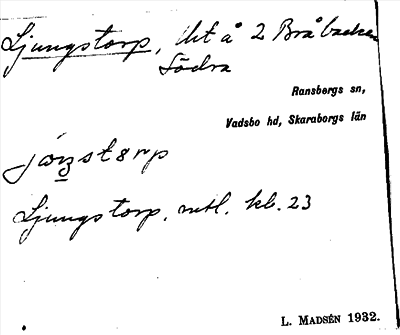 Ljungstorp, lht å 2 Bråbacken
Södra
Ransbergs sn,
Vadsbo hd, Skaraborgs län
Ljungstorp, mtl. kb. 23
L. MADSÉN 1932.